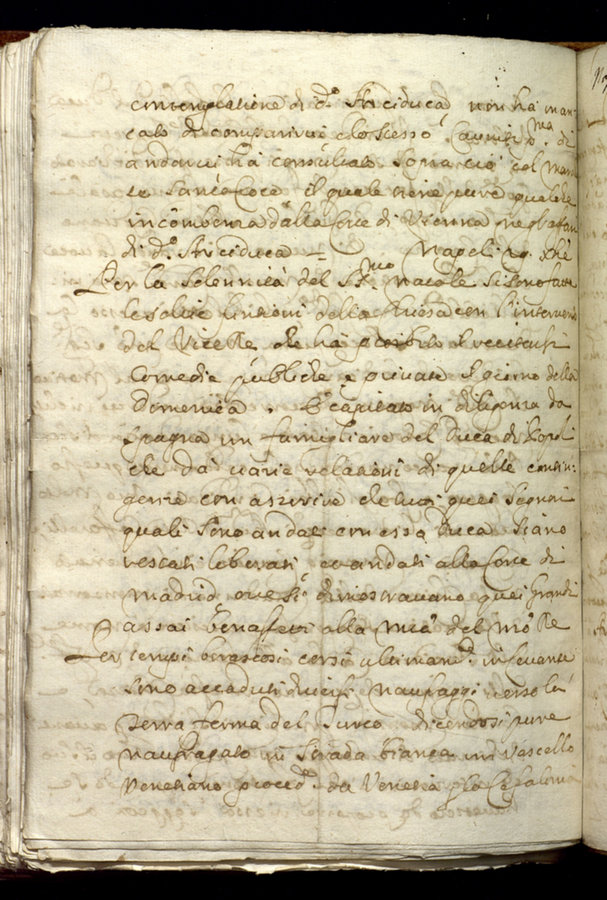 contemplatione di d.o Arciduca non ha man-
cato di comparirui lo stesso
andarui ha consultato sopra ciò col Mar.
se Santa Croce il quale tiene pure qualche
incombenza dalla Corte di Vienna negl'affari
di d.o Arciduca Napoli 29 Xbre
Per la Solennità del SS.mo Natale si sono fatte
le solite funtioni della Chiesa con l'interuento
del ViceRe che ha prohibito il recitarsi
Comedie publiche e priuate il giorno della
Domenica. È capitato in diligenza da
Spagna un famigliare del Duca di Popoli
che dà uarie relationi di quelle contin-
genze con asserire che tutti quei Signori
quali sono andati con esso Duca siano
restati liberati et andati alla Corte di
Madrid oue si dimostrauano quei Grandi
assai benaffetti alla M.tà del n.ro Re
Per tempi burascosi corsi ultimam.te in Leuante
sono accaduti diuersi naufraggi uerso la
Terra ferma del Turco dicendosi pure
naufragato in Strada bianca un Vascello
Venetiano proced.te da Venetia p. la Cefalonia